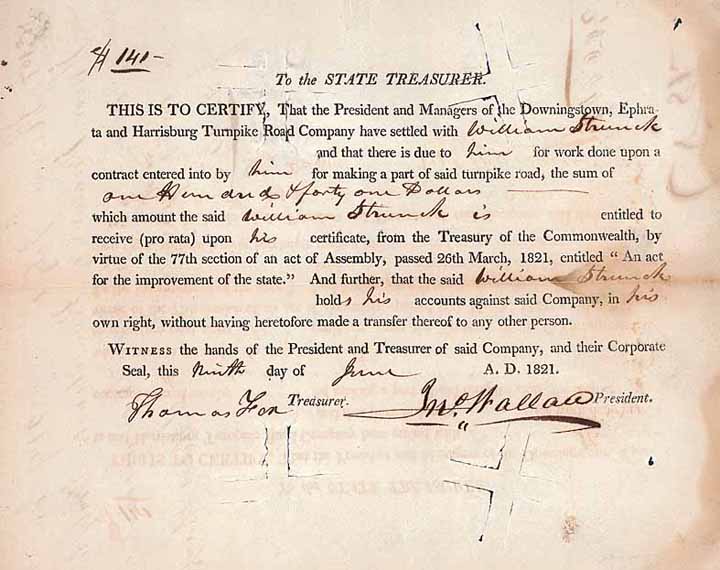 $ 141-
To the STATE TREASURER.
THIS IS TO CERTIFY, That the President and Managers of the Downingstown, Ephra-
ta and Harrisburg Turnpike Road Company have settled with William Strunck
and that there is due to him for work done upon a
contract entered into by him for making a part of said turnpike road, the sum of
one Hundred & forty one Dollars
which amount the said William Strunck is entitled to
receive (pro rata) upon his certificate, from the Treasury of the Commonwealth, by
virtue of the 77th section of an act of Assembly, passed 26th March, 1821, entitled "An act
for the improvement of the state." And further, that the said William Strunck
holds his accounts against said Company, in his
own right, without having heretofore made a transfer thereof to any other person.
WITNESS the hands of the President and Treasurer of said Company, and their Corporate
Seal, this Ninth day of June A. D. 1821.
Thomas Fox Treasurer. Jno. Wallace President.